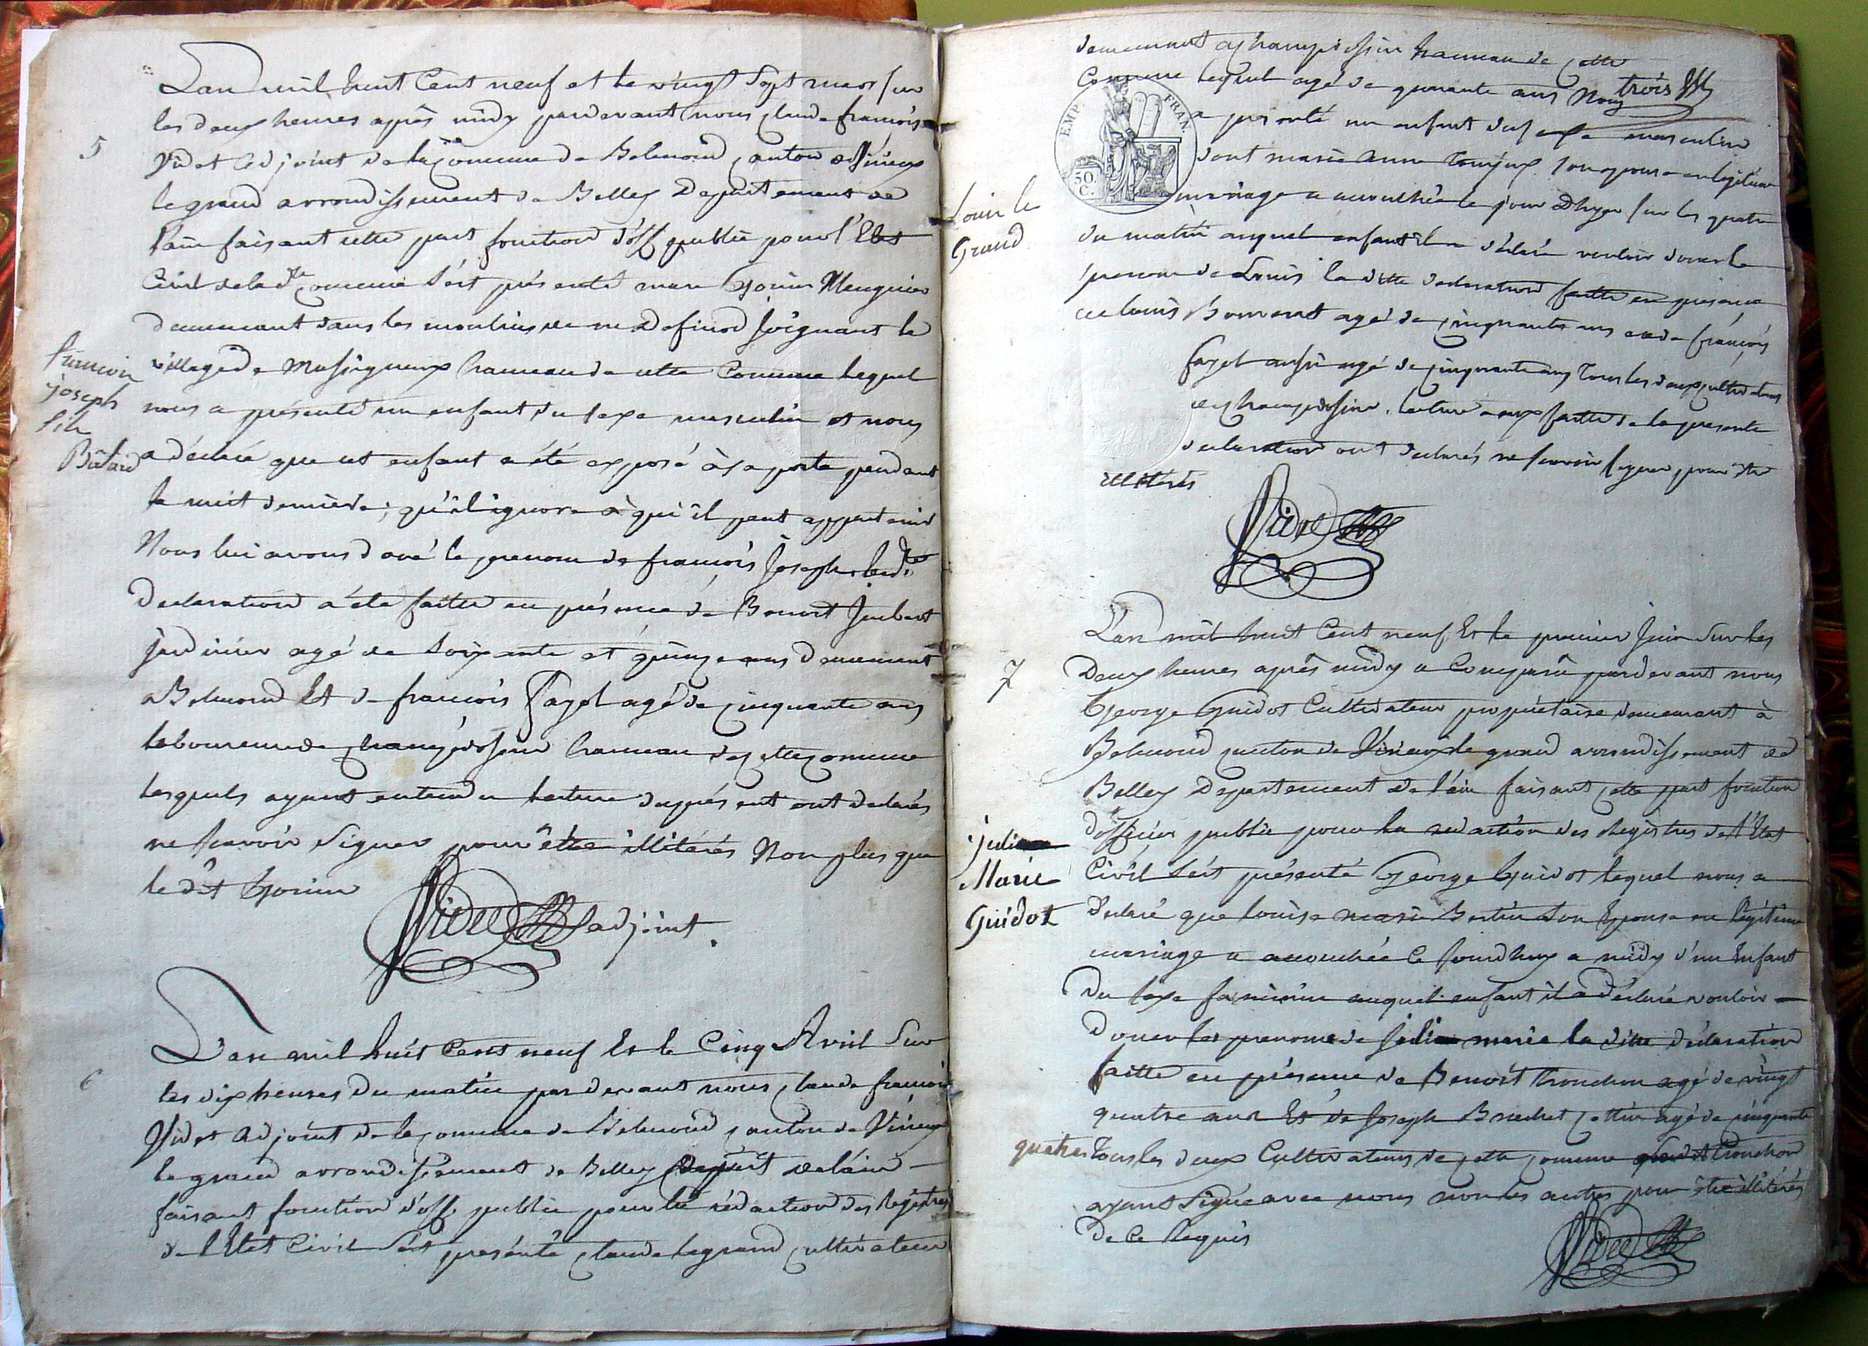 5
L'an mil huit Cent neuf et le vingt sept mars sur
les deux heures après midy pardevant nous Claude francois
Vidot Adjoint de la Comune de Belmond canton de Virieux
le grand arrondissement de Belley Departement de
l'ain faisant cette part fonction d'off publice pour l'Etat
Civil de la dte Comune s'est présenté marc Gonin Meugnier
demeurant dans les moulins de joignant le
village de Massigneux hameau de cette Comune lequel
nous a présenté un enfant du sexe masculin et nous
a déclaré que cet enfant a été exposé à sa porte pendant
la nuit dernière; qu'il ignore à qui il peut appartenir
Nous lui avons doné le prenom de francois Joseph. la dte
declaration a été faitte en présence de Benoit Joubert
jardinier agé de soixante et quinze ans demeurant
a Belmond Et de francois fayol agé de cinquante ans
laboureur de hameau de cette comune
lesquels ayant entendu lecture du présent ont declarés
ne scavoir signer pour être illitérés Non plus que
le dit Gonin
francois
joseph
Bâtard
Vidot adjoint
6
L'an mil huit Cent neuf Et le Cinq Avril Sur
les dix heures du matin pardevant nous Claude francois
Vidot Adjoint de la Comune de Belmond canton de Virieux
le grand arrondissement de Belley Depart de l'ain
faisant fonction d'off. publice pour la rédaction des Registres
de l'Etat Civil s'est présenté Claude legrand cultivateur
demeurant a hameau de cette
Comune lequel agé de quarante trois ans Nous
a présenté un enfant du sexe masculin
dont marie anne son epouse en legitime
mariage a accouchée le jour d'hyer sur les quatre
du matin auquel enfant il a déclaré vouloir doner le
prenom de Louis la ditte declaration faitte en présence
de louis Bonnent agé de cinquante ans et de francois
fayol aussi agé de cinquante ans Tous les deux cultivateurs
lecture a eux faitte de la presente
declaration ont declarés ne scavoir signer pour être
illitérés
EMP. FRAN.
50.
C.
Louis le
Grand
Vidot
7
L'an mil huit Cent neuf Et le premier Juin Sur les
Deux heures après midy a Comparu pardevant nous
George Guidot Cultivateur propriétaire demeurant à
Belmond canton de Virieux le grand arrondissement de
Belley Departement de l'ain faisant cette part fonction
d'officier publice pour la redaction des Registres de l'Etat
Civil s'est présenté George Guidot lequel nous a
Declaré que Louise marie Bertin Son Epouse en legitime
mariage a accouchée Ce jourdhuy a midy d'un Enfant
Du sexe feminin auquel enfant il a déclaré vouloir
Doner les prenoms de Julie marie la ditte déclaration
faitte en présence de Benoit Tronchon agé de vingt
quatre ans Et de Joseph Brachet agé de cinquante
quatre Tous les deux Cultivateurs de cette comune Tronchon
ayant signé avec nous non les autres pour être illitérés
De Ce Requis
Julie
Marie
Guidot
Vidot